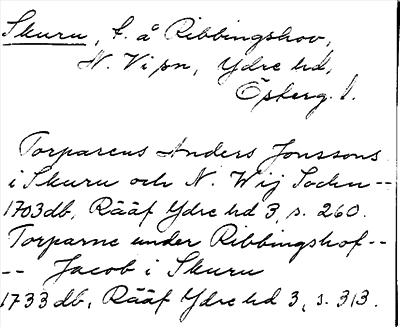 Skuru, t. å Ribbingshov,
N. Vi sn, Ydre hd,
Östergl.
Torparens Anders Jonssons
i Skuru och N. Wij Socken --
1703 db, Rääf Ydre hd 3, s. 260.
Torparne under Ribbingshof --
-- Jacob i Skuru
1733 db, Rääf Ydre hd 3, s. 313.